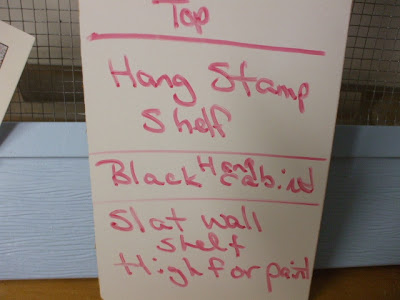 Top
Hang Stamp
Shelf
Black Hang Cabind
Slat wall
Shelf
High for paint